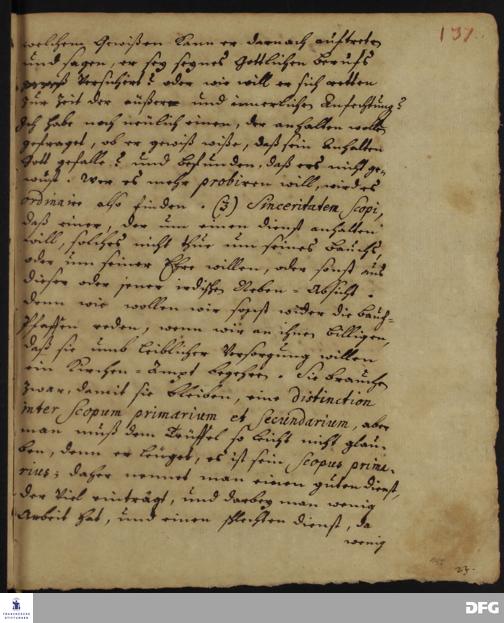 137.
welchem Gewißen kann er darnach auftreten
und sagen, er sey seynes Göttlichen beruffs
gewiß versichert? oder wie will er sich retten
zur Zeit der äußeren und innerlichen Anfechtung?
Ich habe noch neülich einen, der anhalten wollte
gefraget, ob er gewiß wiße, daß sein Anhalten
Gott gefalle? und befunden, daß er es nicht ge-
wust. Wer es mehr probiren will, wird es
ordinaire also finden. (3) Sinceritatem Scopi,
daß einer, der um einen dienst anhalten
will, solches nicht thue um seines bauchs,
oder um seiner Ehre willen, oder sonst aus
dieser oder jener irdischen Neben-Absicht.
denn wie wollen wir sonst wider die bauch-
Pfaffen reden, wenn wir an ihnen billigen,
daß sie umb leiblicher Versorgung willen
ein Kirchen-Ampt begehren. Sie brauchen
zwar, damit sie bleiben, eine distinction
inter Scopum primarium et Secundarium, aber
man muß dem Teüffel so leicht nicht glau-
ben, denn er lüget, es ist sein Scopus prima-
rius; daher nennet man einen guten dienst,
der viel einträgt, und darbey man wenig
Arbeit hat, und einen schlechten dienst, da
wenig
23.
FRANCKESCHE
STIFTUNGEN
DFG